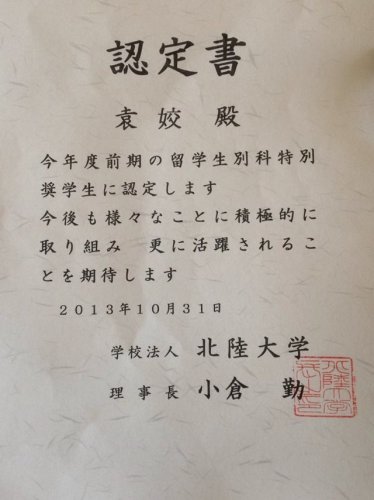 認定書
袁姣 殿
今年度前期の留学生別科特別
奨学生に認定します
今後も様々なことに積極的に
取り組み　更に活躍されるこ
とを期待します
２０１３年１０月３１日
学校法人 北陸大学
理事長 小倉 勤